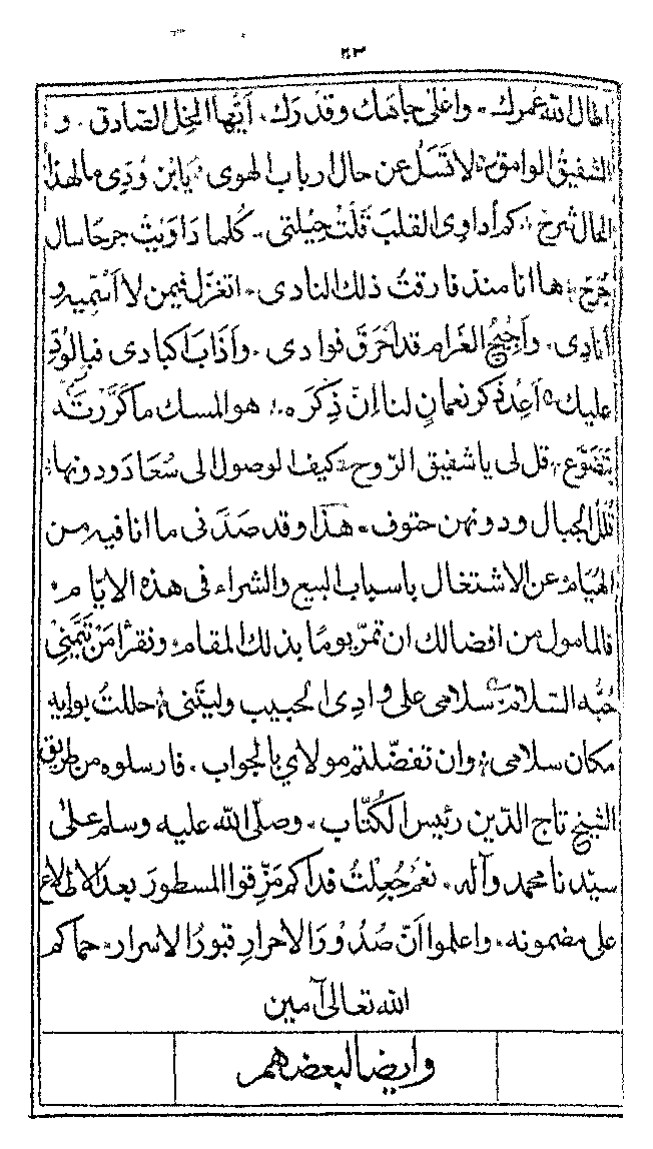 ٤٣
اطال الله عمرك۰ واعلى جاهك وقدرك۰ اَيّها الخِل الصّادق۰ و
الشفيقُ الوامق؞ لا تَسَل عن حال ارباب الهوى؞ يا ابن وُدِى ما لهذا
الحال شرح؞ كم أداوِى القلبَ قَلّت حِيلتى؞ كُلما دَاوَيتُ جرحًا سال
جُرحٌ؞ ها انا منذ فارقتُ ذلك النادى۰ اتغزّل فيمن لا اُسَمّيه و
اُنادِى۰ واَجيجُ الغَرام قد اَحرَقَ فوادى۰ واَذَابَ اكبادى فبالوُدّ
عليك؞ اَعِد ذكر نعمانٍ لنا اِنّ ذِكرَه؞ هو المسك ما كَرَّرتَه
يَتَضَوّع؞ قل لى يا شفيق الرّوح؞ كيف الوصول الى سُعَاد ودونها؞
قُلَلُ الجبال ودونهن حتوف۰ هذا وقد صَدَّنى ما انا فيه من
الهُيَام عن الاشتغال باسباب البيع والشراء فى هذه الايّام۰
فالمامول من افضالك ان تمرّ يومًا بذلك المقام؞ وتقرأ مَن تَيَّمَنِى
حُبُّه السّلام؞ سلامى على وادِى الحبيب وليتَنى؞ حللتُ بواديه
مكان سلامى؞ وان تفضّلتم مولاي بالجواب۰ فارسلوه من طريق
الشيخ تاج الدّين رئيس الكُتّاب۰ وصلّى الله عليه وسلم على
سيّدنا محمد وآله۰ نعم جُعِلتُ فداكم مَزّقوا المسطورَ بعد الاطلاع
على مضمونه۰ واعلموا اَنّ صُدُوْرَ الاحرارِ قبورُ الاسرار۰ حماكم
الله تعالى آمين
وايضا لبعضهم